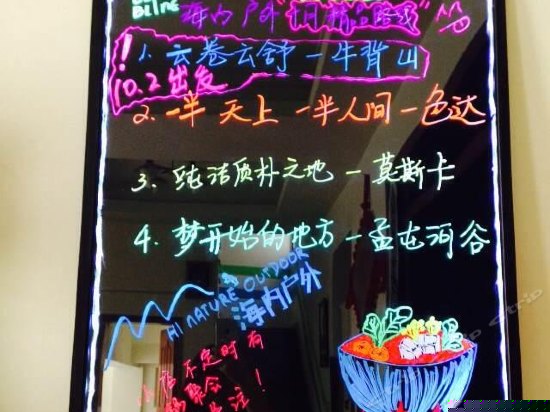 海内户外
1. 云卷云舒 — 牛背山
10.2 出发
2. 一半天上 一半人间 — 色达
3. 纯洁质朴之地 — 莫斯卡
4. 梦开始的地方 — 孟屯河谷
HI NATURE OUTDOOR
海内户外
不定时有
聚会